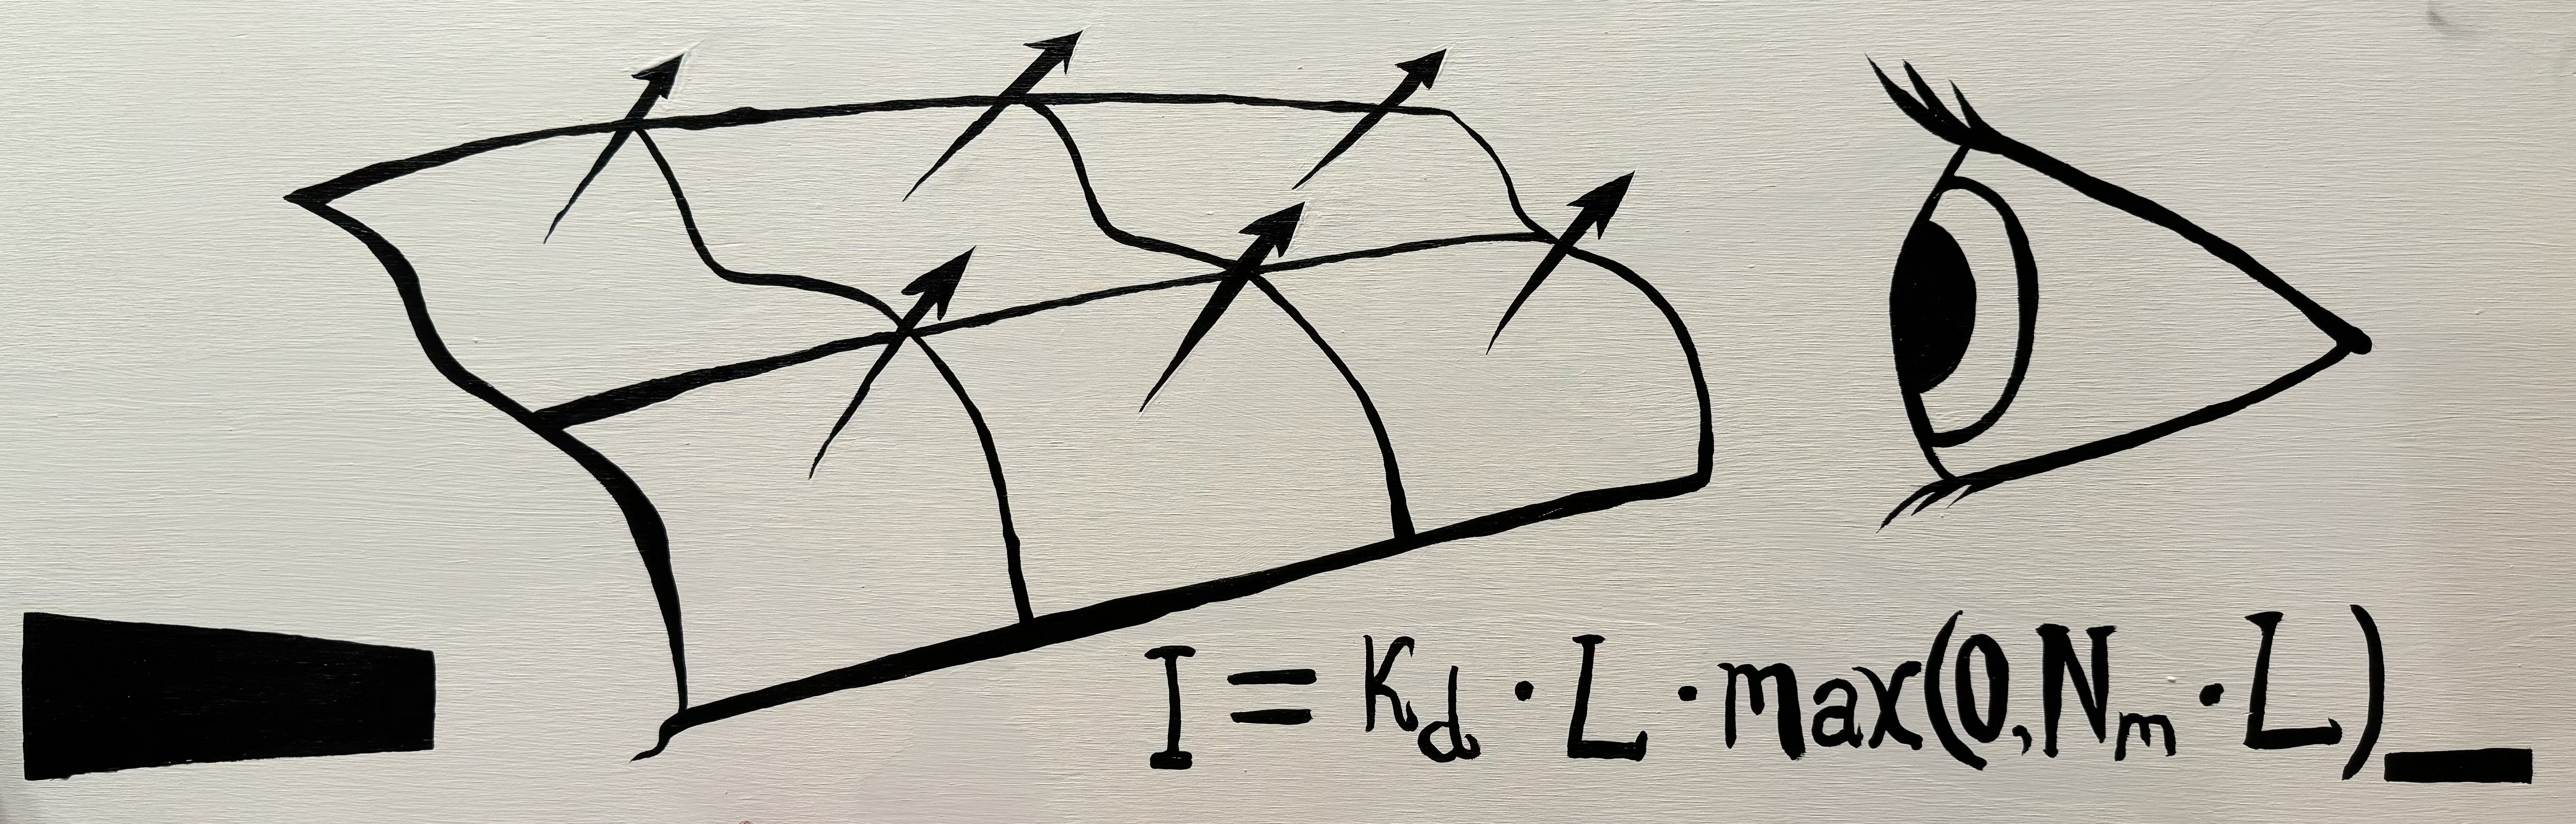 I = Kd · L · max(0, Nm · L)_